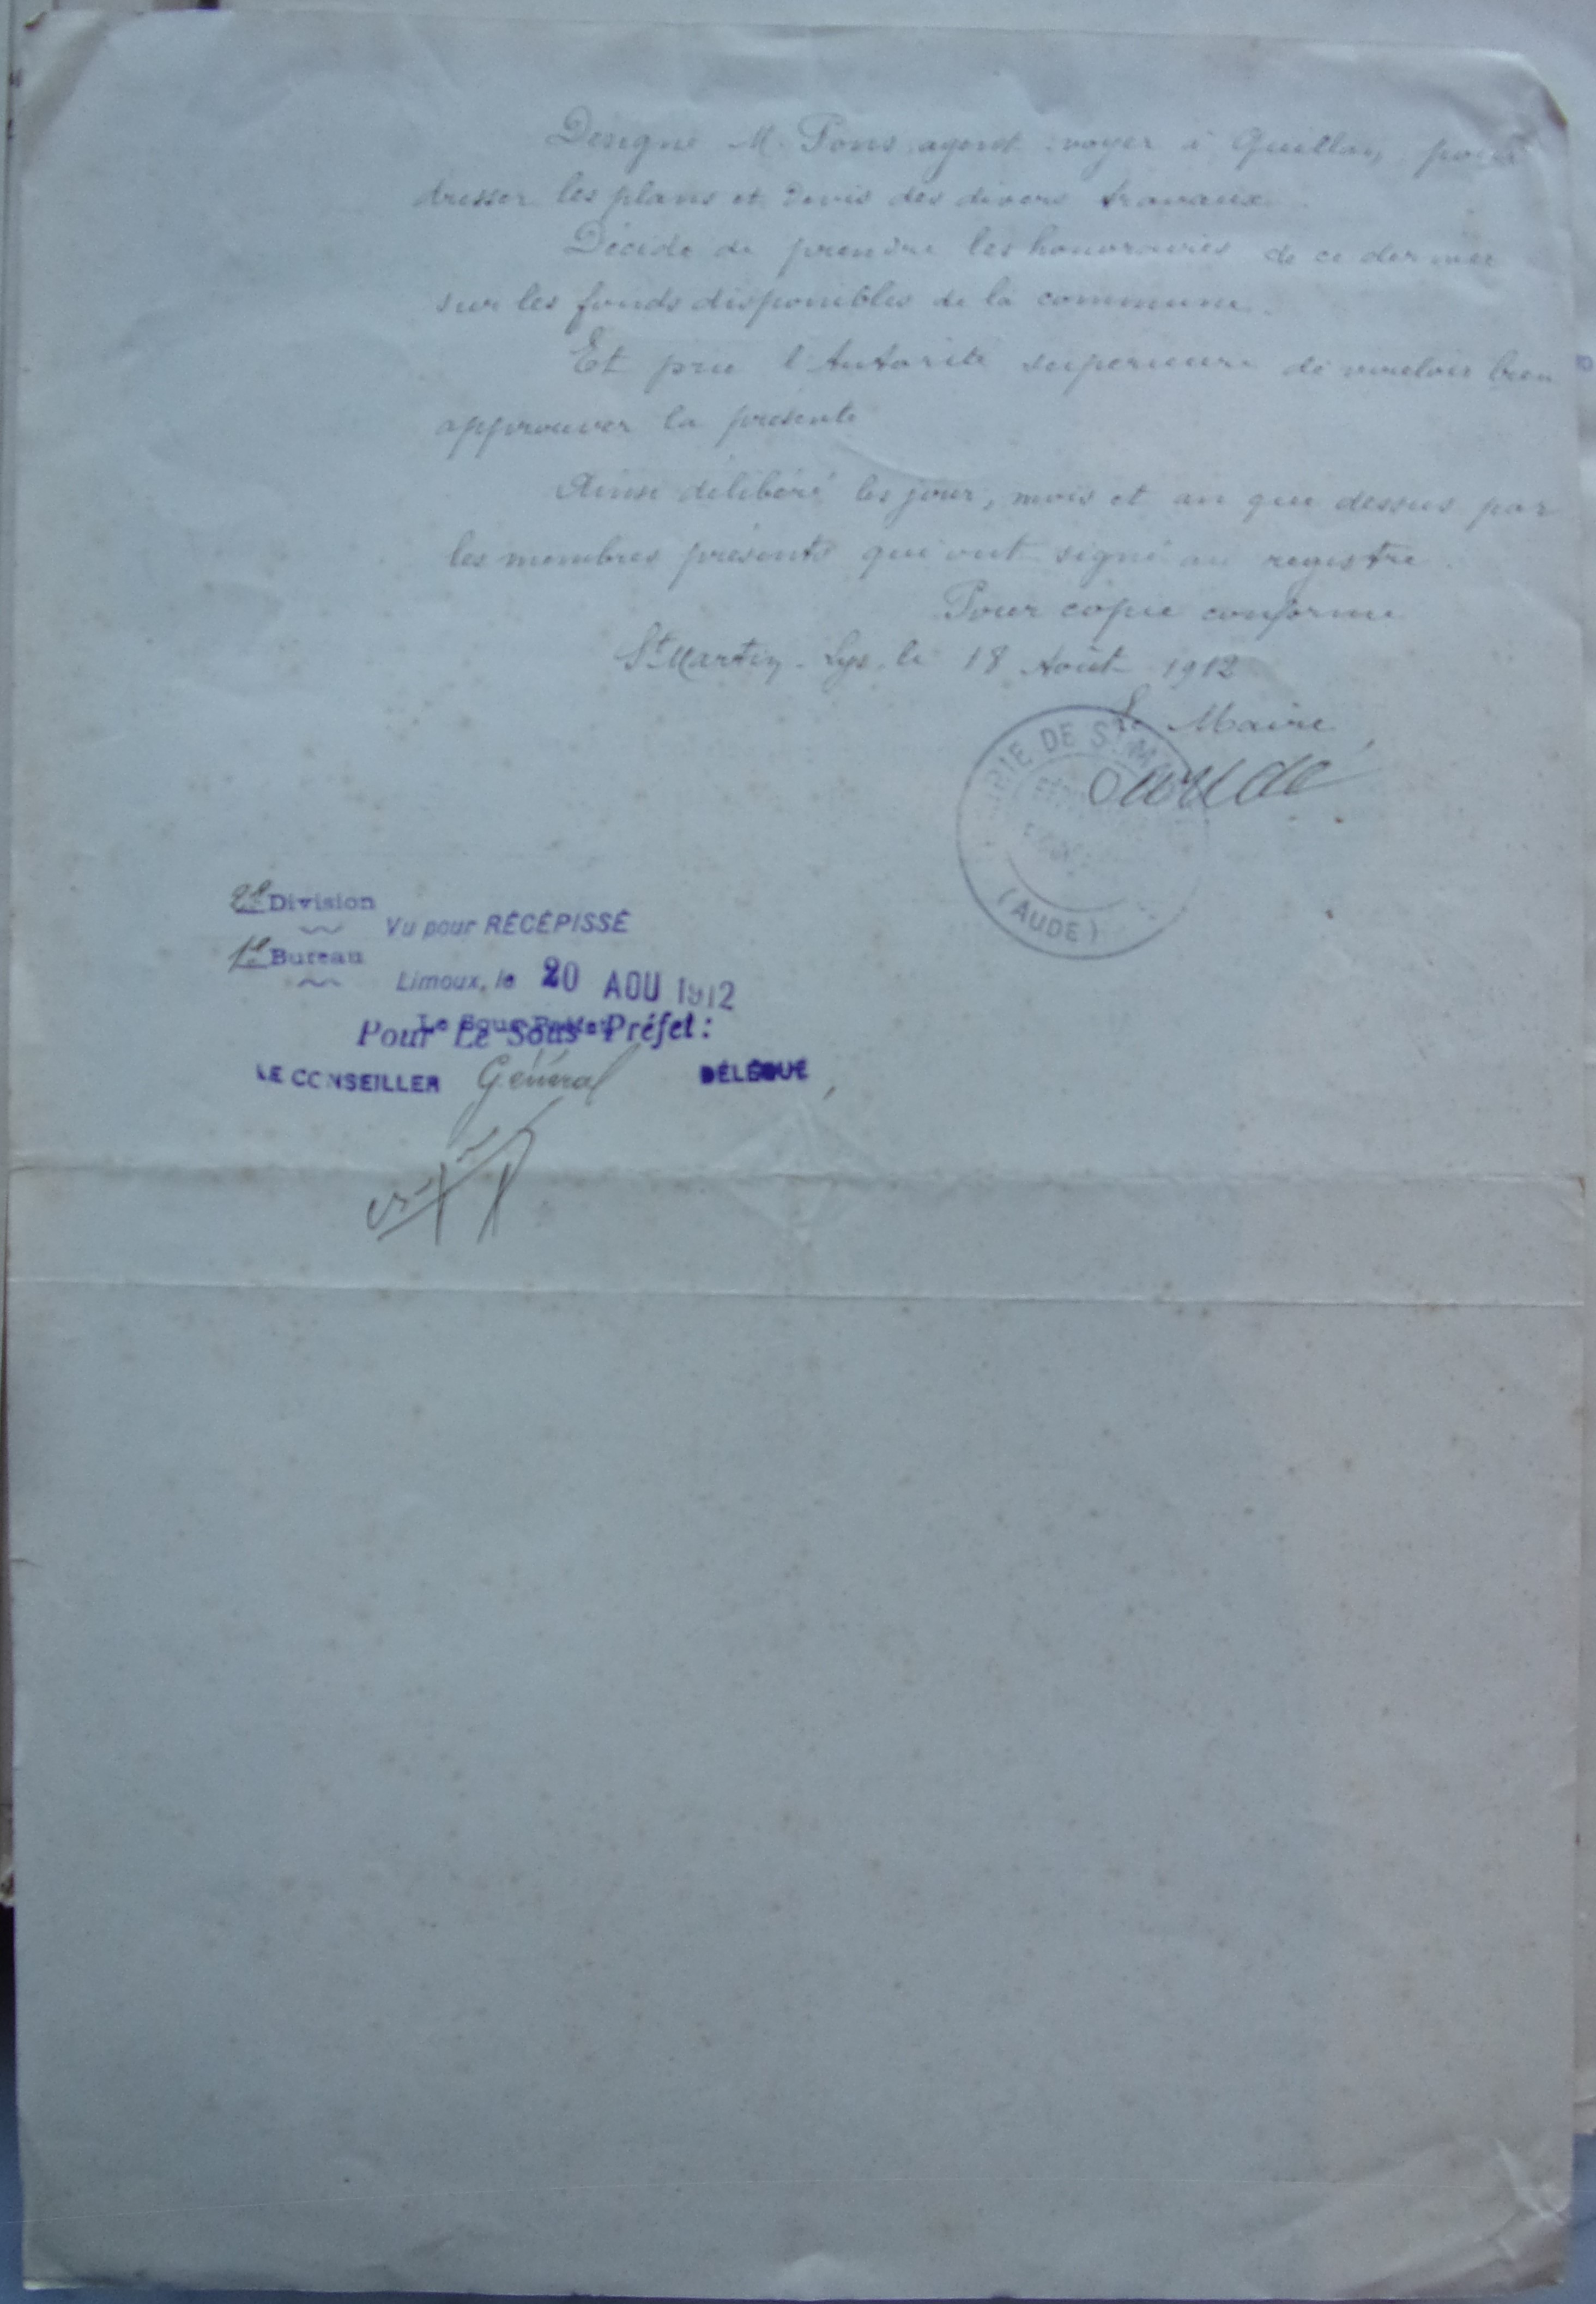 Désigne M. Pons agent voyer à Quillan, pour
dresser les plans et devis des divers travaux.
Décide de prendre les honoraires de ce dernier
sur les fonds disponibles de la commune.
Et prie l'Autorité supérieure de vouloir bien
approuver la présente
Ainsi délibéré les jour, mois et an que dessus par
les membres présents qui ont signé au registre.
Pour copie conforme
St Martin-Lys, le 18 Août 1912
Le Maire,
MAIRIE DE St M
(AUDE)
2e Division
Vu pour RÉCÉPISSÉ
1e Bureau
Limoux, le 20 AOU 1912
Le Sous-Préfet
Pour Le Sous-Préfet:
LE CONSEILLER Général DÉLÉGUÉ,